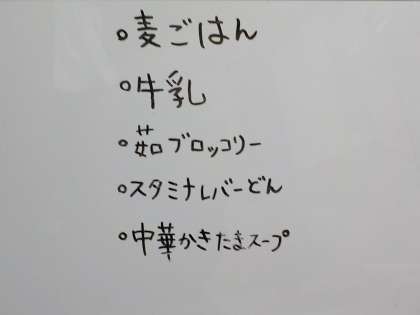 。麦ごはん
。牛乳
。茹ブロッコリー
。スタミナレバーどん
。中華かきたまスープ